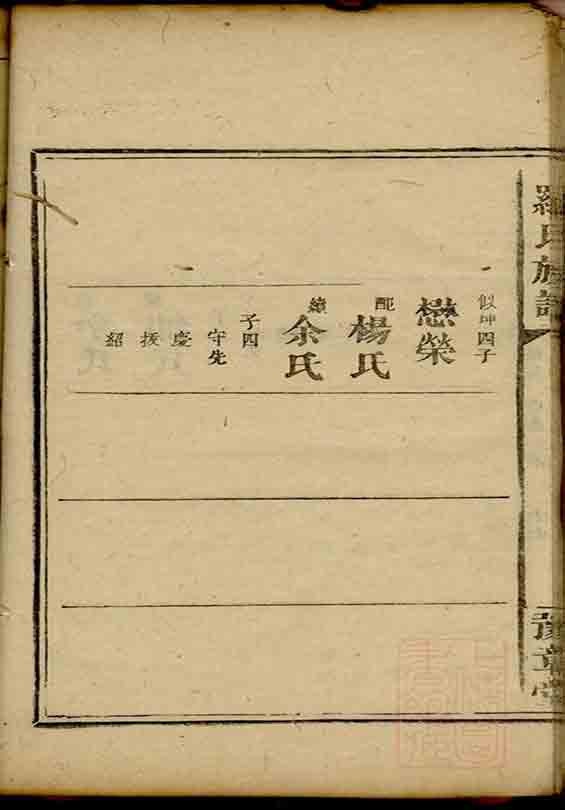 羅氏族譜
豫章堂
似坤四子
懋榮
配
楊氏
續
余氏
子四
守先
慶
援
紹